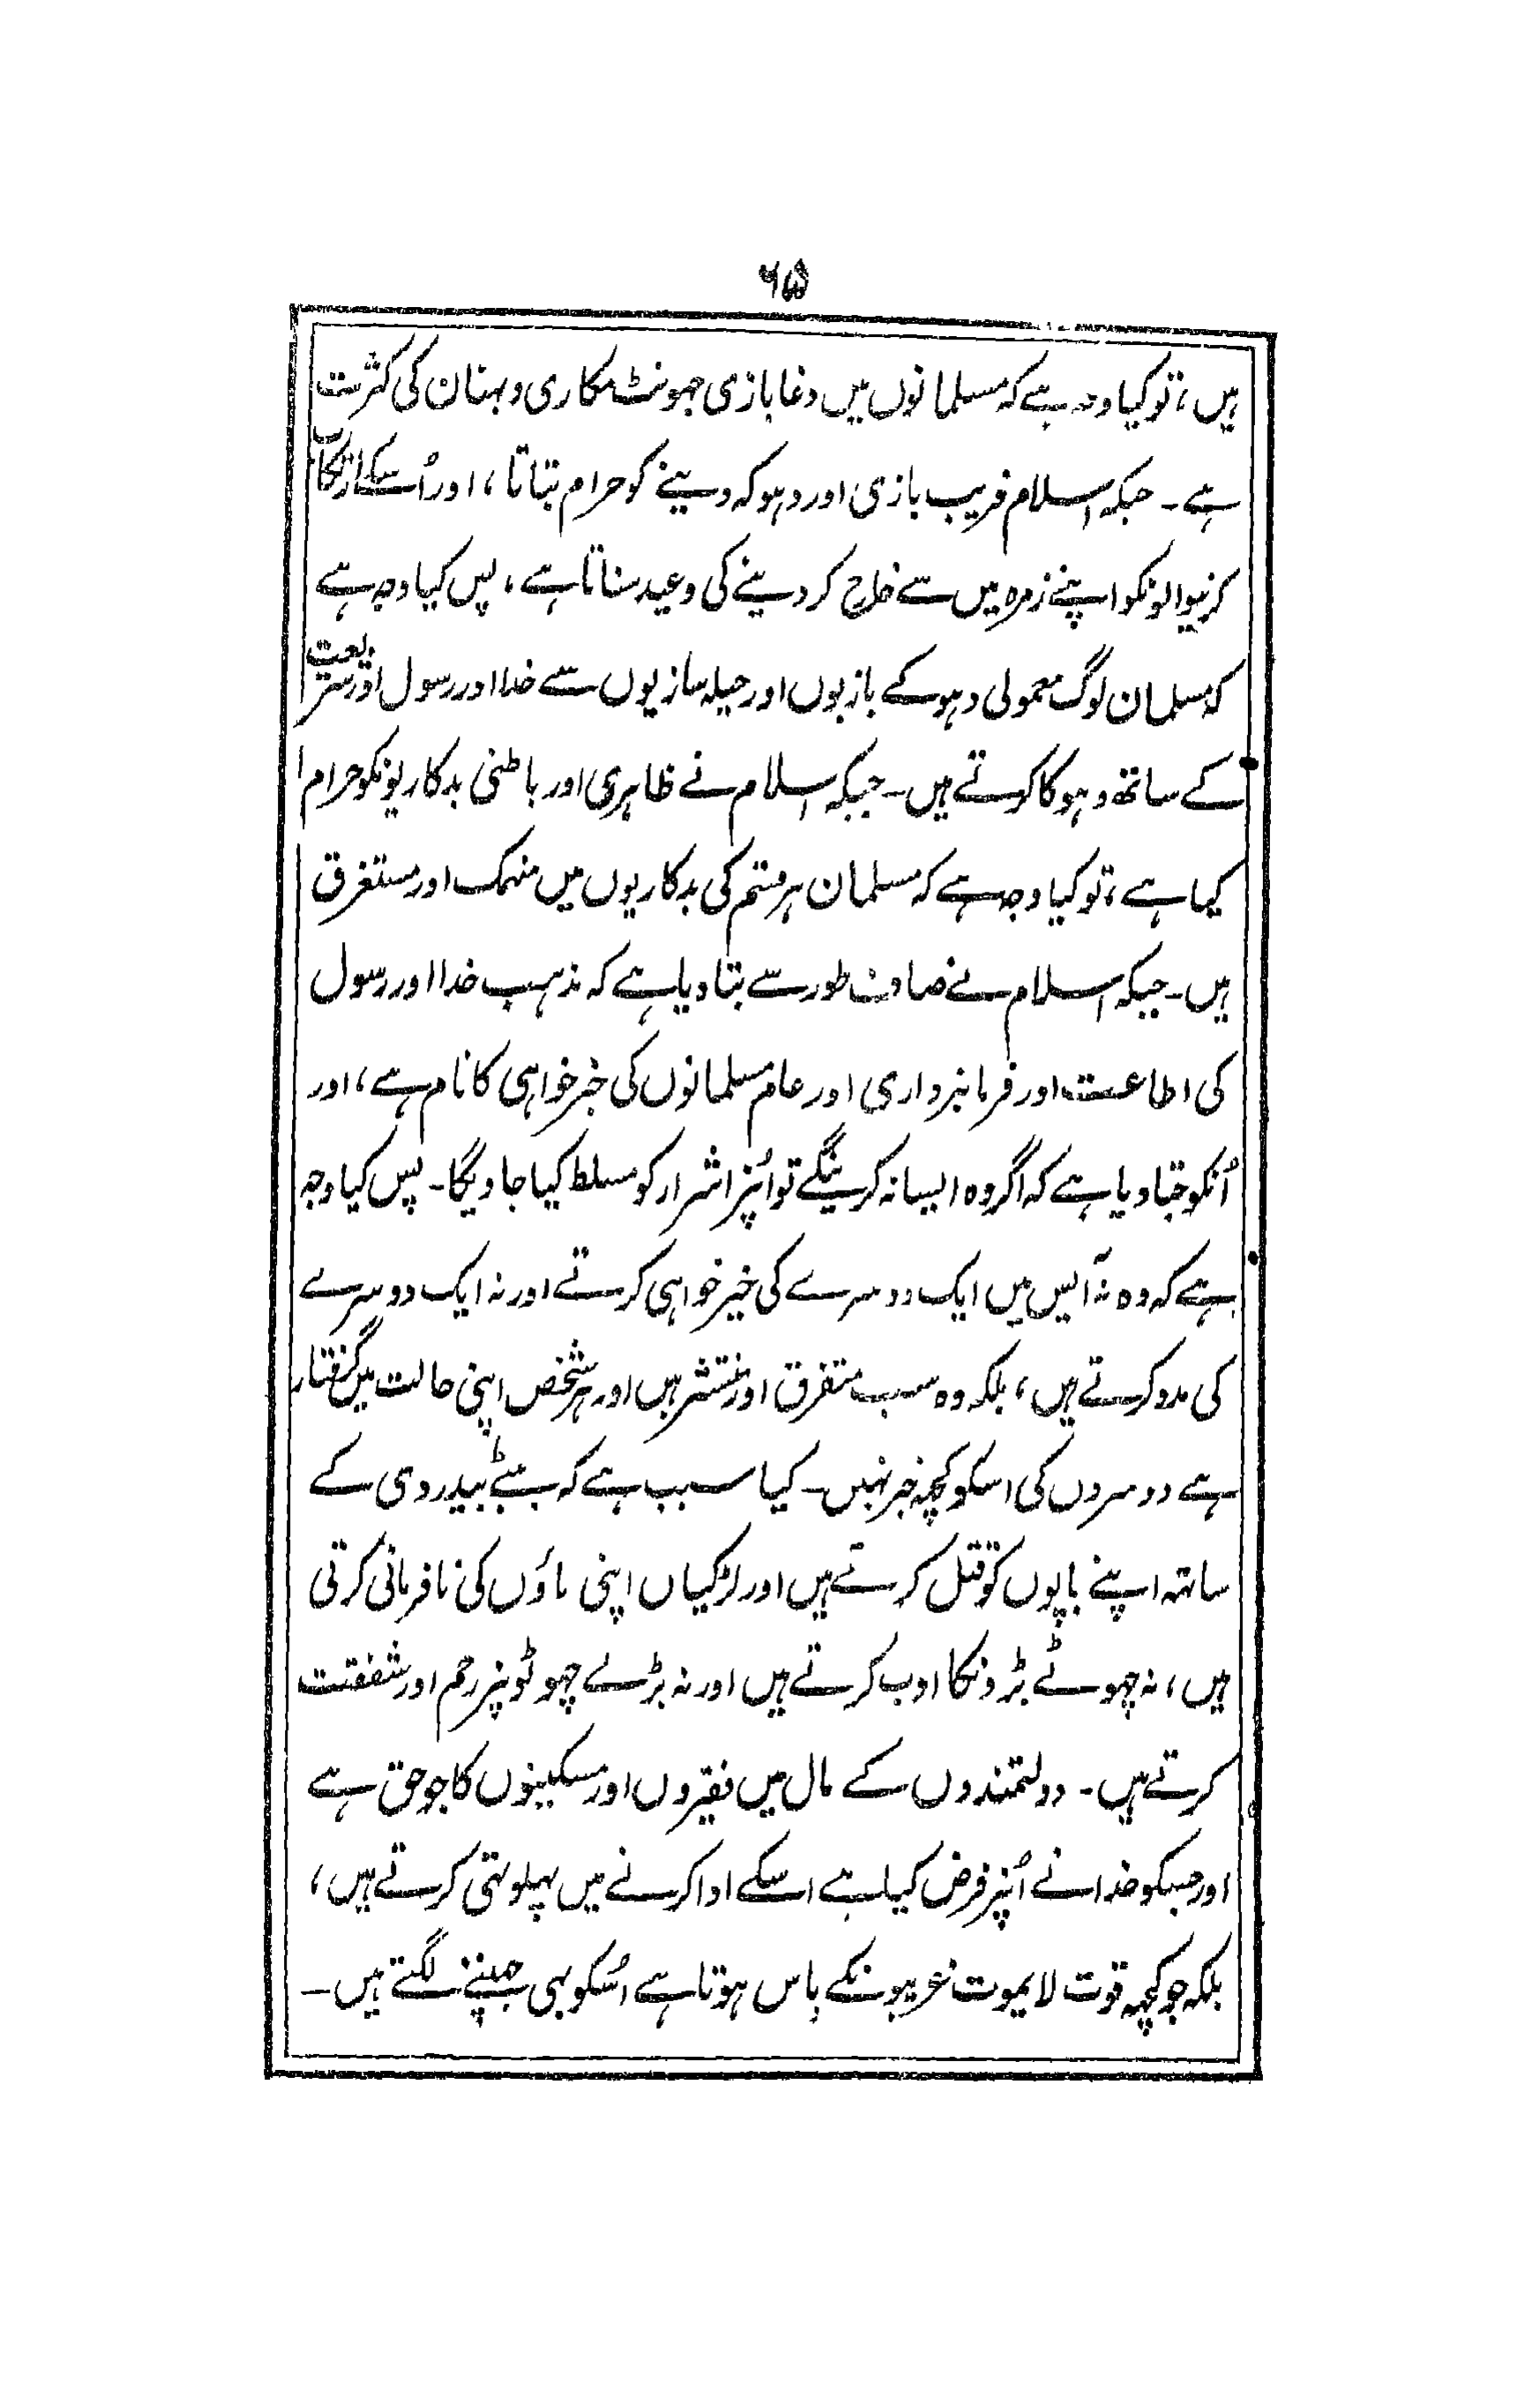 ۶۵
ہیں، تو کیا وجہ ہے کہ مسلمانوں میں دغابازی جھونٹ مکاری و بہتان کی کثرت
ہے۔ جبکہ اسلام فریب بازی اور دہوکہ دینے کو حرام بتاتا، اور اُسکے ارتکاب
کرنیوالونکو اپنے زمرہ میں سے خارج کر دینے کی وعید سناتا ہے، پس کیا وجہ ہے
کہ مسلمان لوگ معمولی دہوکے بازیوں اور حیلہ سازیوں سے خدا اور رسول اور شریعت
کے ساتھ دہوکا کرتے ہیں۔ جبکہ اسلام نے ظاہری اور باطنی بدکاریونکو حرام
کیا ہے، تو کیا وجہ ہے کہ مسلمان ہر قسم کی بدکاریوں میں منہمک اور مستغرق
ہیں۔ جبکہ اسلام نے صاف طور سے بتا دیا ہے کہ مذہب خدا اور رسول
کی اطاعت اور فرمانبرداری اور عام مسلمانوں کی خیرخواہی کا نام ہے، اور
اُنکو جتا دیا ہے کہ اگر وہ ایسا نہ کرینگے تو اُنپر اشرار کو مسلط کیا جاویگا۔ پس کیا وجہ
ہے کہ وہ نہ آپس میں ایک دوسرے کی خیر خواہی کرتے اور نہ ایک دوسرے
کی مدد کرتے ہیں، بلکہ وہ سب متفرق اور منتشر ہیں اور ہر شخص اپنی حالت میں گرفتار
ہے دوسروں کی اسکو کچہہ خبر نہیں۔ کیا سبب ہے کہ بیٹے بیدردی کے
ساتہہ اپنے باپوں کو قتل کرتے ہیں اور لڑکیاں اپنی ماؤں کی نافرمانی کرتی
ہیں، نہ چہوٹے بڑونکا ادب کرتے ہیں اور نہ بڑے چہوٹونپر رحم اور شفقت
کرتے ہیں۔ دولتمندوں کے مال میں فقیروں اور مسکینوں کا جو حق ہے
اور جسکو خدا نے اُنپر فرض کیا ہے اسکے ادا کرنے میں پہلوتہی کرتے ہیں،
بلکہ جو کچہہ قوت لایموت غریبونکے پاس ہوتا ہے اُسکو بہی چہیننے لگتے ہیں۔